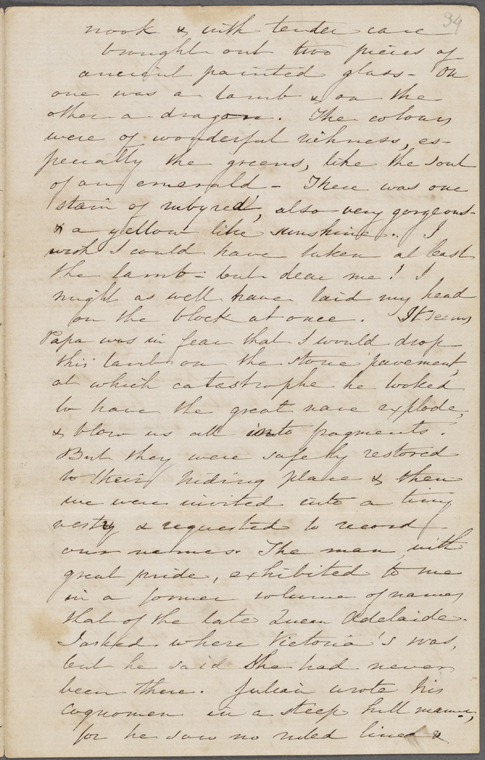 34
nook & with tender care
brought out two pieces of
ancient painted glass - On
one was a lamb & on the
other a dragon. The colours
were of wonderful richness, es-
pecially the greens, like the soul
of an emerald - There was one
stain of ruby red, also very gorgeous -
& a yellow like sunshine. I
wish I could have taken at least
the lamb - but dear me! I
might as well have laid my head
on the block at once. It seems
Papa was in fear that I would drop
this lamb on the stone pavement,
at which catastrophe he looked
to have the great nave explode,
& blow us all into fragments.
But they were safely restored
to their hiding place & then
we were invited into a tiny
vestry & requested to record
our names. The man, with
great pride, exhibited to me
in a former volume of names
that of the late Queen Adelaide.
I asked where Victoria's was,
but he said She had never
been there. Julian wrote his
cognomen in a steep hill manner,
for he saw no ruled lines &